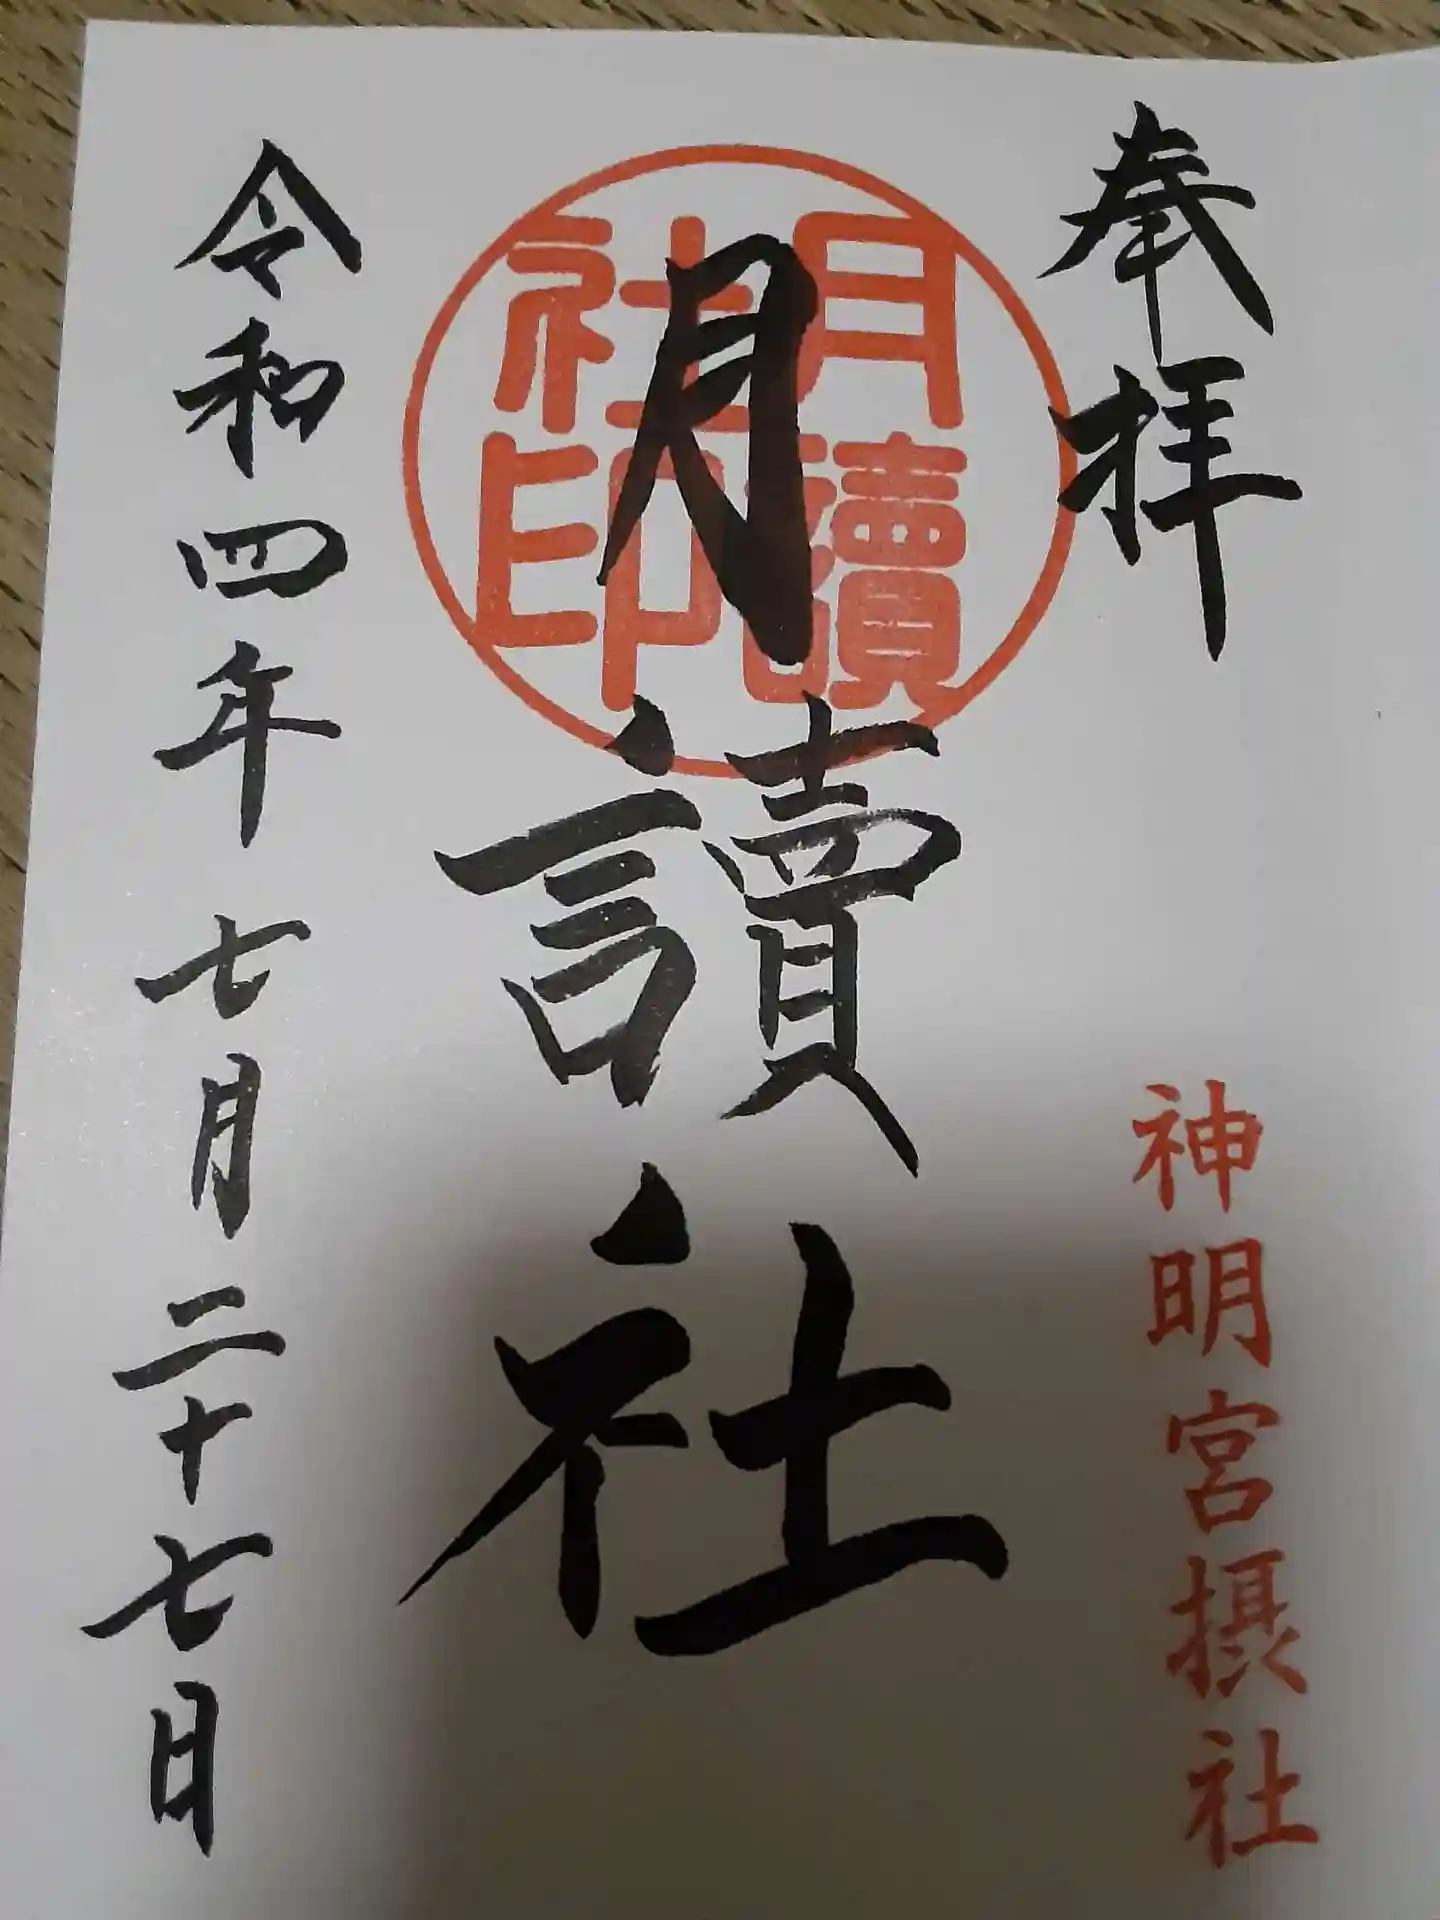 奉拝
神明宮摂社
月讀社
月讀
社印
令和四年七月二十七日